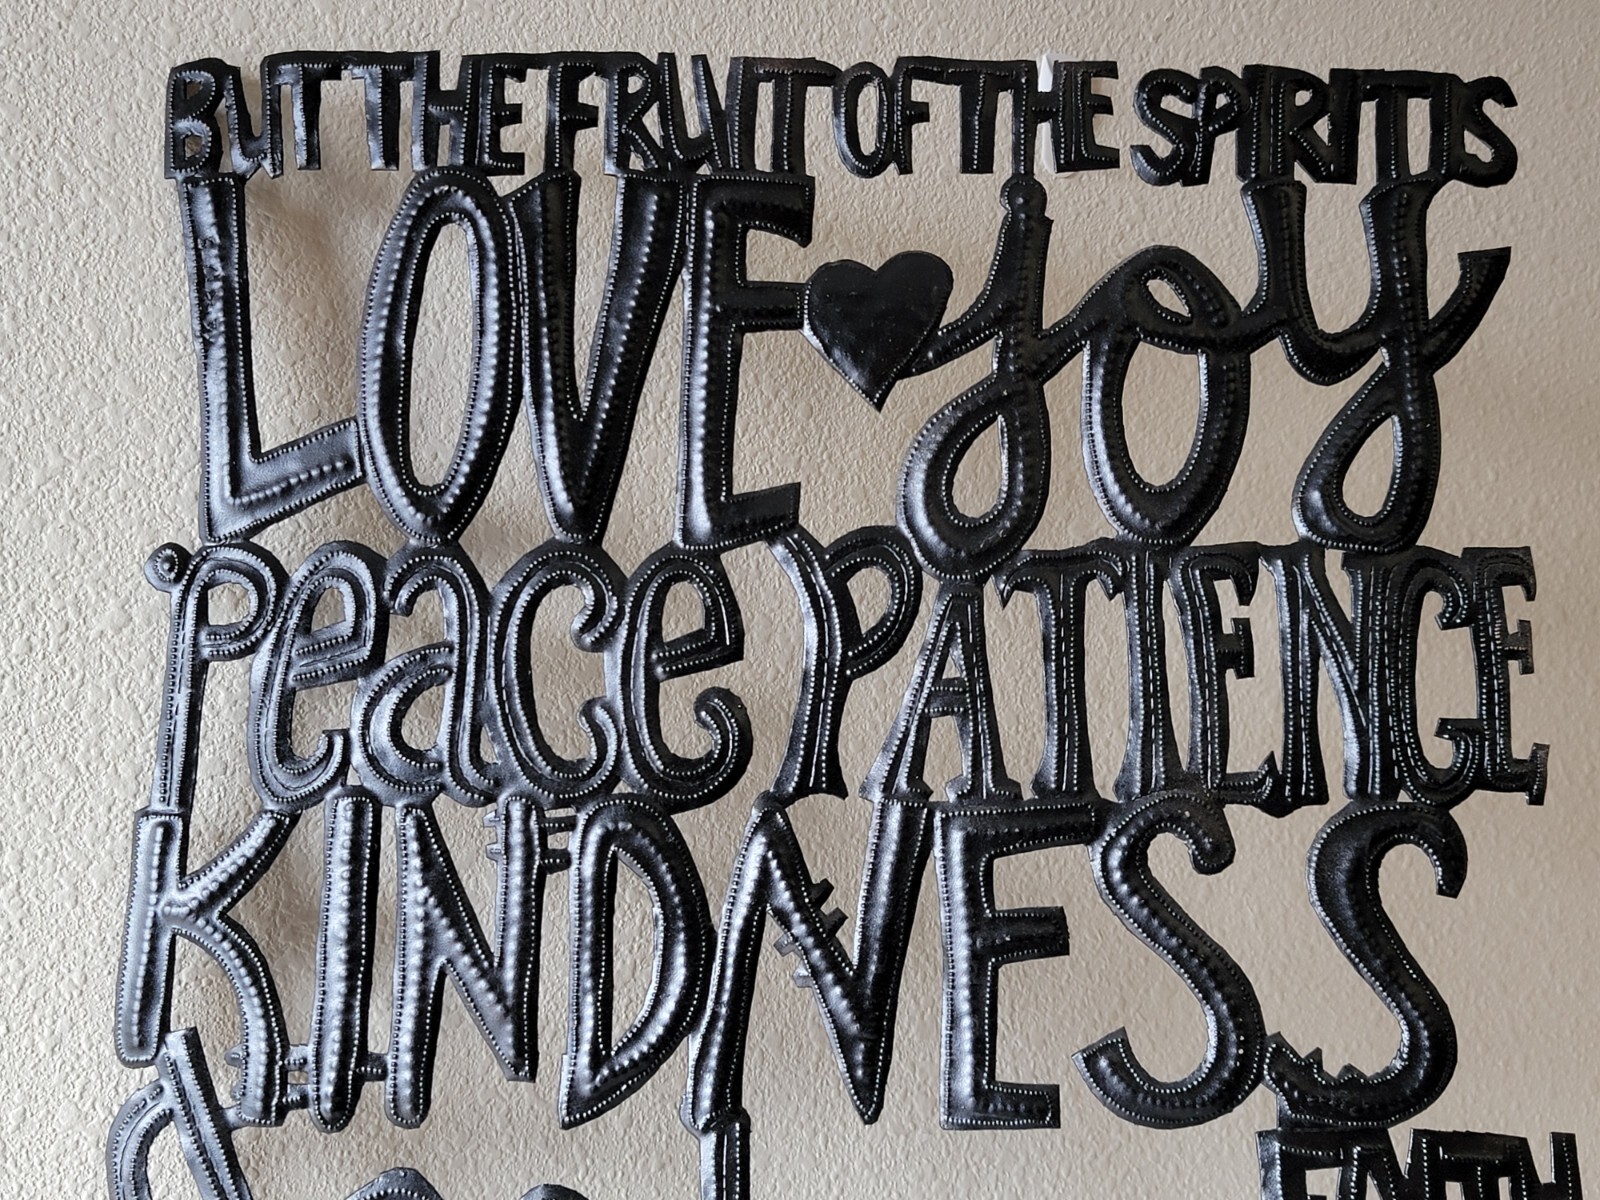 BUT THE FRUIT OF THE SPIRIT IS
LOVE joy
Peace PATIENCE
KINDNESS